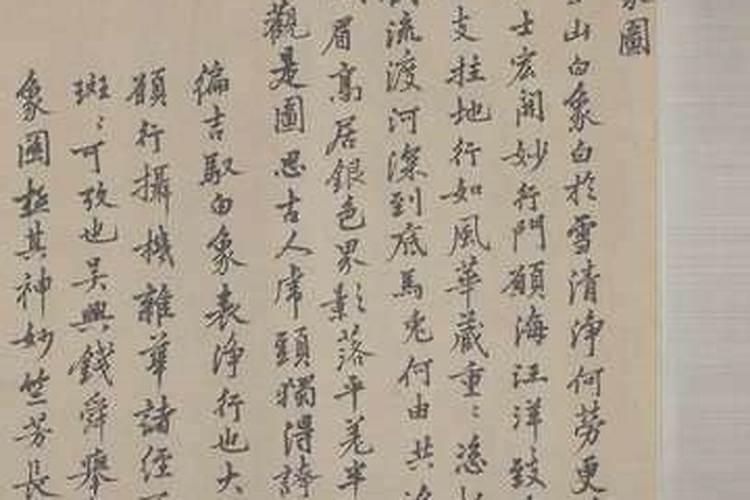 圖
山白象白於雪清淨何勞更
士宏開妙行門願海汪洋
支拄地行如風華藏重〻
流渡河深到底馬兎何由共
眉高居銀色界影落平羌半
觀是圖思古人虎頭獨得
偏吉馭白象表淨行也大
願行攝機雜華諸經
斑〻可攷也吳興錢舜舉
象圖極其神妙竺芳長